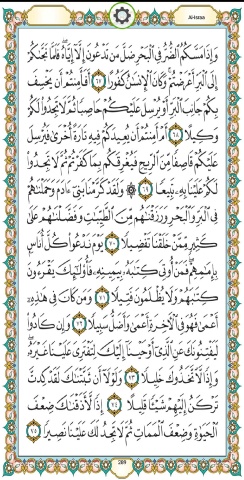 Al-Israa
وَإِذَا مَسَّكُمُ ٱلضُّرُّ فِي ٱلْبَحْرِ ضَلَّ مَن تَدْعُونَ إِلَّآ إِيَّاهُ فَلَمَّا نَجَّىٰكُمْ
إِلَى ٱلْبَرِّ أَعْرَضْتُمْ وَكَانَ ٱلْإِنسَٰنُ كَفُورًا ٦٧ أَفَأَمِنتُمْ أَن يَخْسِفَ
بِكُمْ جَانِبَ ٱلْبَرِّ أَوْ يُرْسِلَ عَلَيْكُمْ حَاصِبًا ثُمَّ لَا تَجِدُوا۟ لَكُمْ
وَكِيلًا ٦٨ أَمْ أَمِنتُمْ أَن يُعِيدَكُمْ فِيهِ تَارَةً أُخْرَىٰ فَيُرْسِلَ
عَلَيْكُمْ قَاصِفًا مِّنَ ٱلرِّيحِ فَيُغْرِقَكُم بِمَا كَفَرْتُمْ ثُمَّ لَا تَجِدُوا۟
لَكُمْ عَلَيْنَا بِهِۦ تَبِيعًا ٦٩ ۞ وَلَقَدْ كَرَّمْنَا بَنِيٓ ءَادَمَ وَحَمَلْنَٰهُمْ
فِي ٱلْبَرِّ وَٱلْبَحْرِ وَرَزَقْنَٰهُم مِّنَ ٱلطَّيِّبَٰتِ وَفَضَّلْنَٰهُمْ عَلَىٰ
كَثِيرٍ مِّمَّنْ خَلَقْنَا تَفْضِيلًا ٧٠ يَوْمَ نَدْعُوا۟ كُلَّ أُنَاسٍۭ
بِإِمَٰمِهِمْ فَمَنْ أُوتِيَ كِتَٰبَهُۥ بِيَمِينِهِۦ فَأُو۟لَٰٓئِكَ يَقْرَءُونَ
كِتَٰبَهُمْ وَلَا يُظْلَمُونَ فَتِيلًا ٧١ وَمَن كَانَ فِي هَٰذِهِۦٓ
أَعْمَىٰ فَهُوَ فِي ٱلْءَاخِرَةِ أَعْمَىٰ وَأَضَلُّ سَبِيلًا ٧٢ وَإِن كَادُوا۟
لَيَفْتِنُونَكَ عَنِ ٱلَّذِيٓ أَوْحَيْنَآ إِلَيْكَ لِتَفْتَرِيَ عَلَيْنَا غَيْرَهُۥ
وَإِذًا لَّٱتَّخَذُوكَ خَلِيلًا ٧٣ وَلَوْلَآ أَن ثَبَّتْنَٰكَ لَقَدْ كِدتَّ
تَرْكَنُ إِلَيْهِمْ شَيْـًٔا قَلِيلًا ٧٤ إِذًا لَّأَذَقْنَٰكَ ضِعْفَ
ٱلْحَيَوٰةِ وَضِعْفَ ٱلْمَمَاتِ ثُمَّ لَا تَجِدُ لَكَ عَلَيْنَا نَصِيرًا ٧٥
289